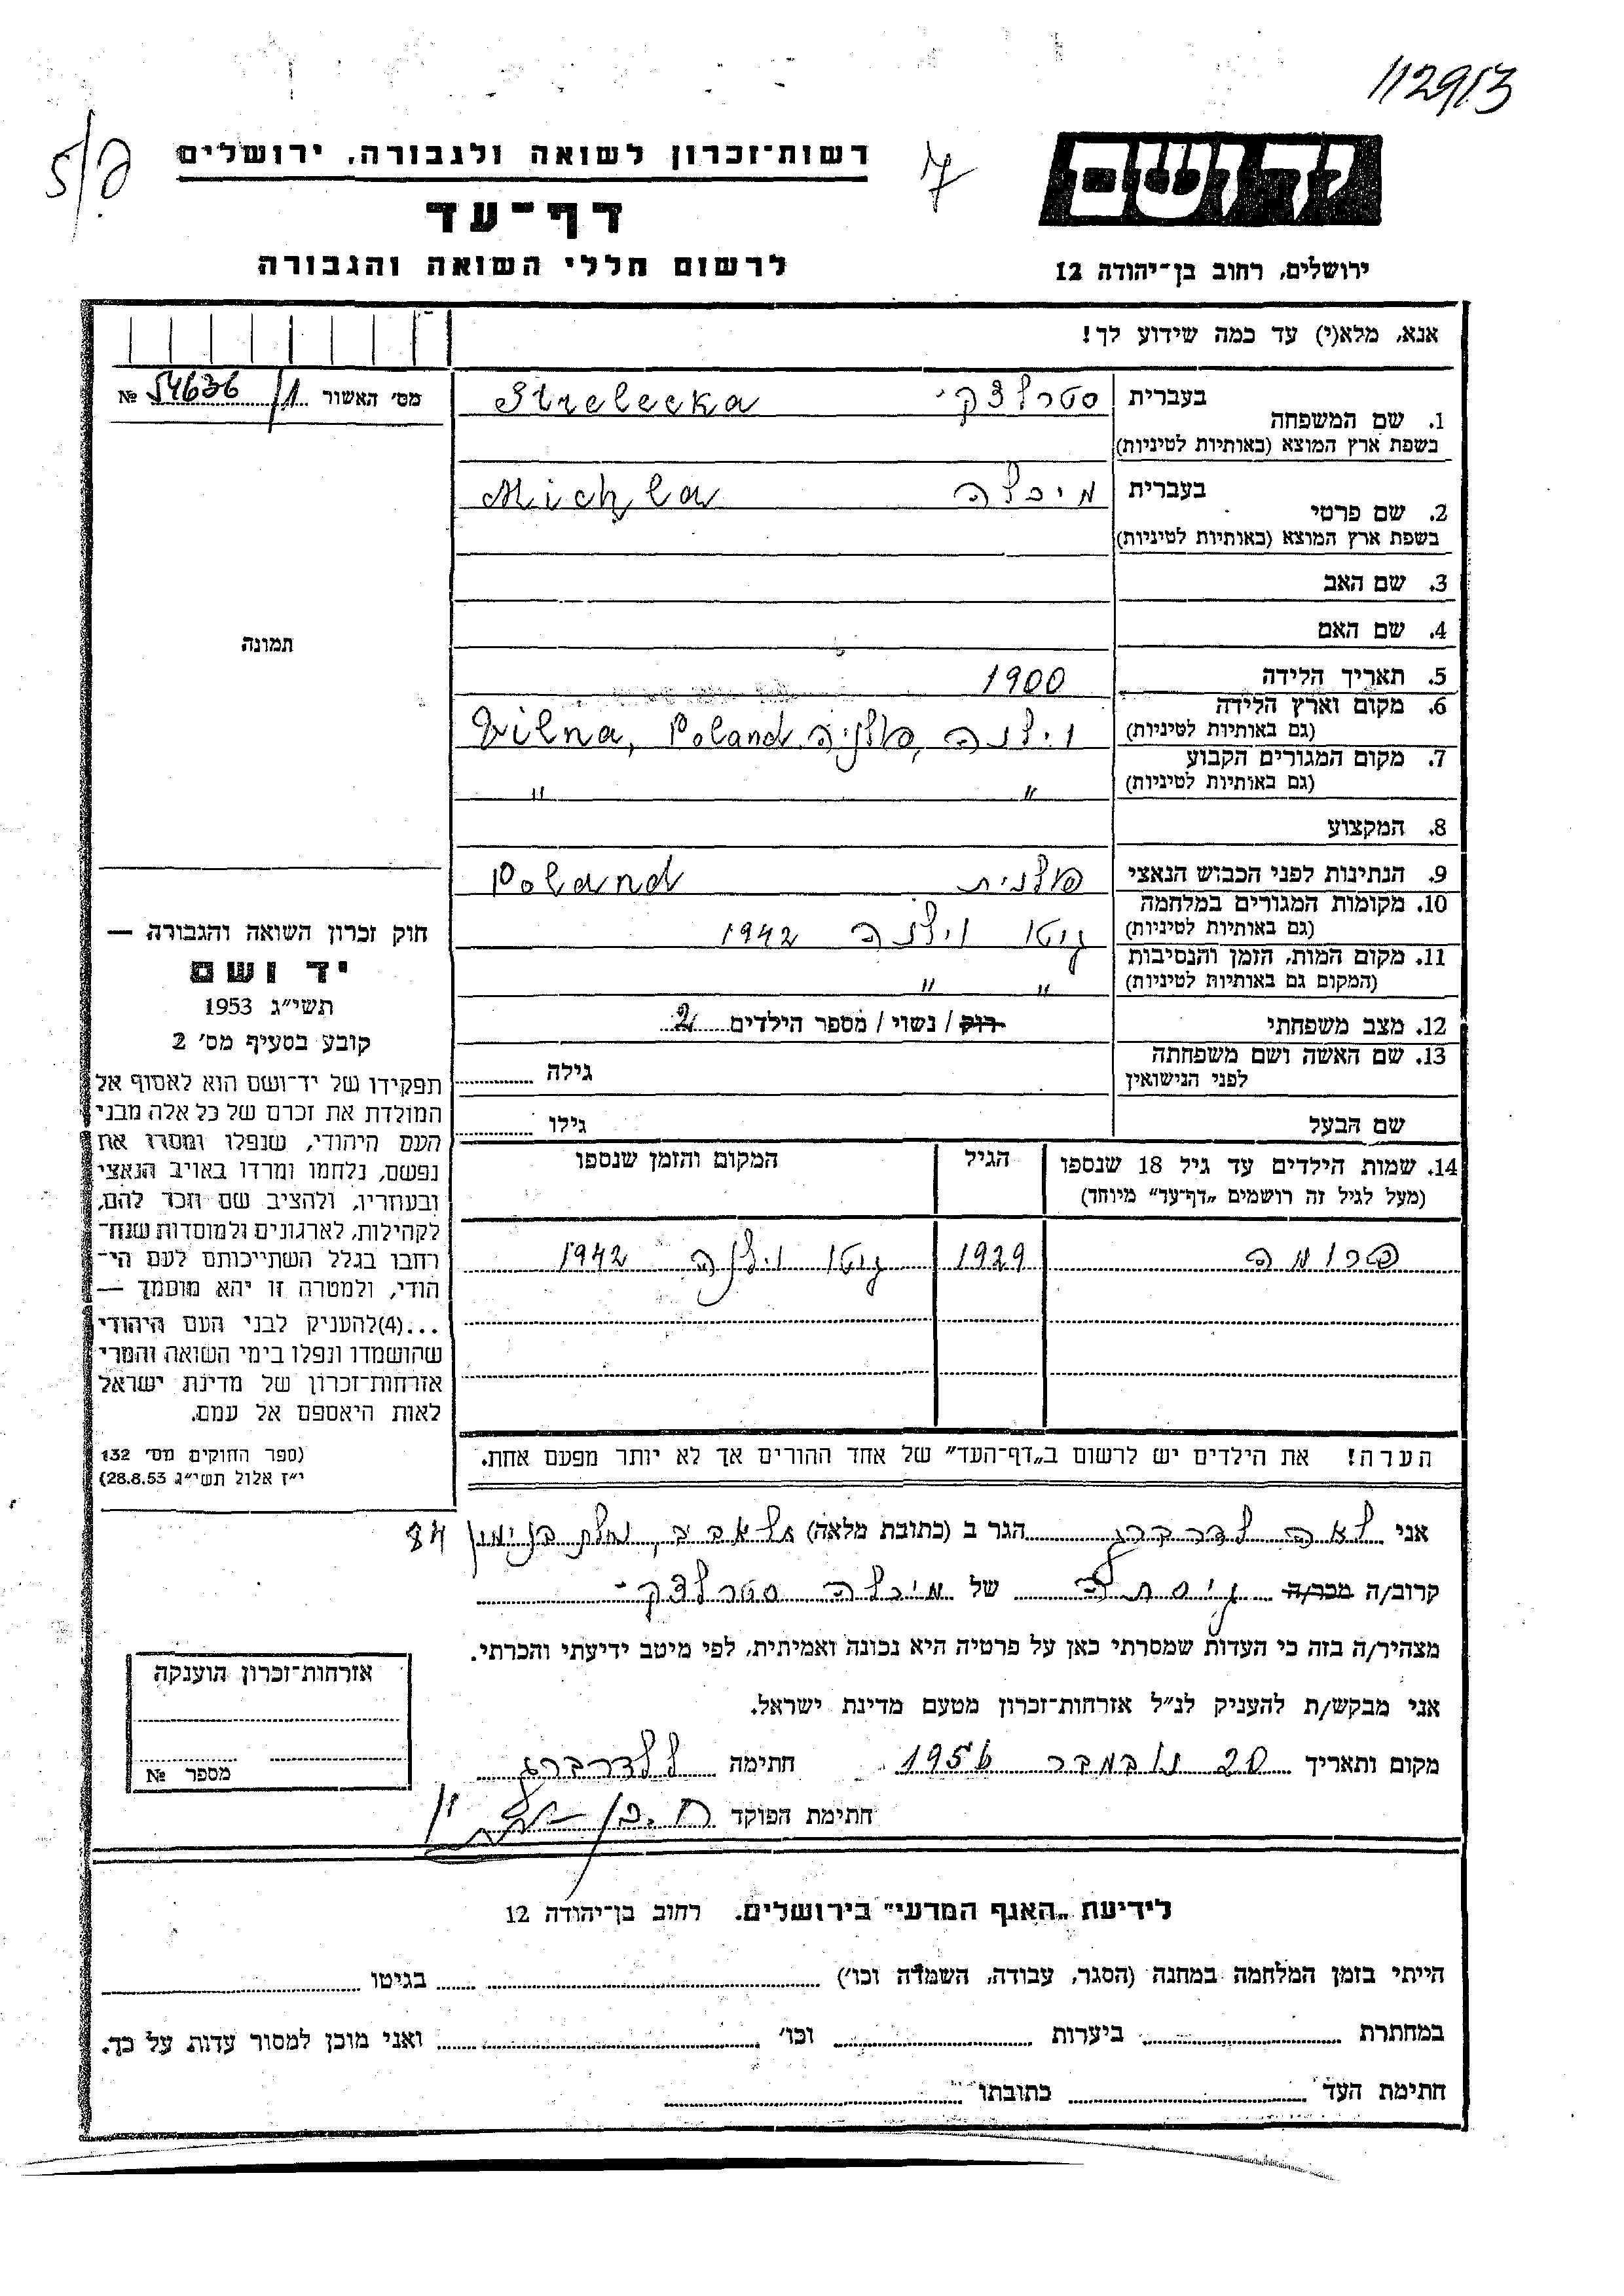 112913
5/ פ
7
יד ושם
רשות־זכרון לשואה ולגבורה, ירושלים
דף־עד
לרשום חללי השואה והגבורה
ירושלים, רחוב בן־יהודה 12
אנא, מלא(י) עד כמה שידוע לך!
מס׳ האשור 1/ 54636 №
1. שם המשפחה
בעברית סטרלצקי Strelecka
בשפת ארץ המוצא (באותיות לטיניות)
2. שם פרטי
בעברית מיכלה Michla
בשפת ארץ המוצא (באותיות לטיניות)
3. שם האב
4. שם האם
תמונה
5. תאריך הלידה 1900
6. מקום וארץ הלידה
(גם באותיות לטיניות) וילנה, פולניה Vilna, Poland
7. מקום המגורים הקבוע
(גם באותיות לטיניות) " "
8. המקצוע
9. הנתינות לפני הכבוש הנאצי פולנית Poland
10. מקומות המגורים במלחמה
(גם באותיות לטיניות) גיטו וילנה 1942
11. מקום המות, הזמן והנסיבות
(המקום גם באותיות לטיניות) " "
12. מצב משפחתי רוק / נשוי / מספר הילדים 2
13. שם האשה ושם משפחתה
לפני הנישואין גילה
שם הבעל גילו
14. שמות הילדים עד גיל 18 שנספו הגיל המקום והזמן שנספו
(מעל לגיל זה רושמים „דף־עד” מיוחד)
פרומה 1929 גיטו וילנה 1942
הערה! את הילדים יש לרשום ב„דף־העד” של אחד ההורים אך לא יותר מפעם אחת.
חוק זכרון השואה והגבורה —
יד ושם
תשי״ג 1953
קובע בסעיף מס׳ 2
תפקידו של יד־ושם הוא לאסוף אל
המולדת את זכרם של כל אלה מבני
העם היהודי, שנפלו ומסרו את
נפשם, נלחמו ומרדו באויב הנאצי
ובעוזריו, ולהציב שם וזכר להם,
לקהילות, לארגונים ולמוסדות שנח־
רחבו בגלל השתייכותם לעם הי־
הודי, ולמטרה זו יהא מוסמך —
...(4)להעניק לבני העם היהודי
שהושמדו ונפלו בימי השואה והמרי
אזרחות־זכרון של מדינת ישראל
לאות היאספם אל עמם.
(ספר החוקים מס׳ 132
י״ז אלול תשי״ג 28.8.53)
אני לאה לדרברג הגר ב (כתובת מלאה) ת״אביב, נחלת בנימין 84
קרוב/ה מכר/ה גיסתה של מיכלה סטרלצקי
מצהיר/ה בזה כי העדות שמסרתי כאן על פרטיה היא נכונה ואמיתית, לפי מיטב ידיעתי והכרתי.
אני מבקש/ת להעניק לנ״ל אזרחות־זכרון מטעם מדינת ישראל.
מקום ותאריך 20 נובמבר 1956 חתימה ל לדרברג
חתימת הפוקד
אזרחות־זכרון הוענקה
מספר №
לידיעת „האגף המדעי” בירושלים. רחוב בן־יהודה 12
הייתי בזמן המלחמה במחנה (הסגר, עבודה, השמדה וכו׳) בגיטו
במחתרת ביערות וכו׳ ואני מוכן למסור עדות על כך.
חתימת העד כתובתו